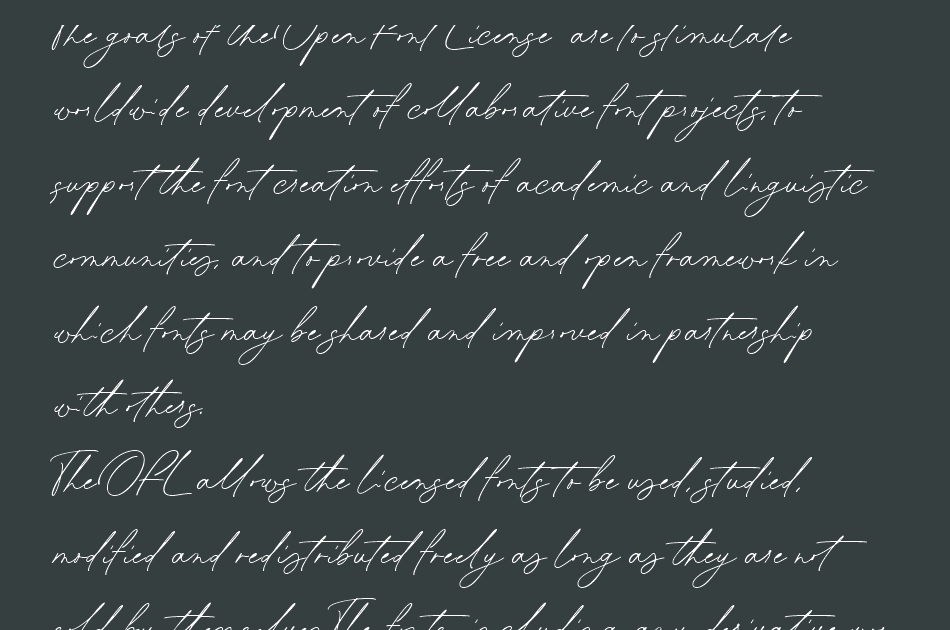 The goals of the Open Font License are to stimulate
worldwide development of collaborative font projects, to
support the font creation efforts of academic and linguistic
communities, and to provide a free and open framework in
which fonts may be shared and improved in partnership
with others.
The OFL allows the licensed fonts to be used, studied,
modified and redistributed freely as long as they are not
sold by themselves. The fonts, including any derivative